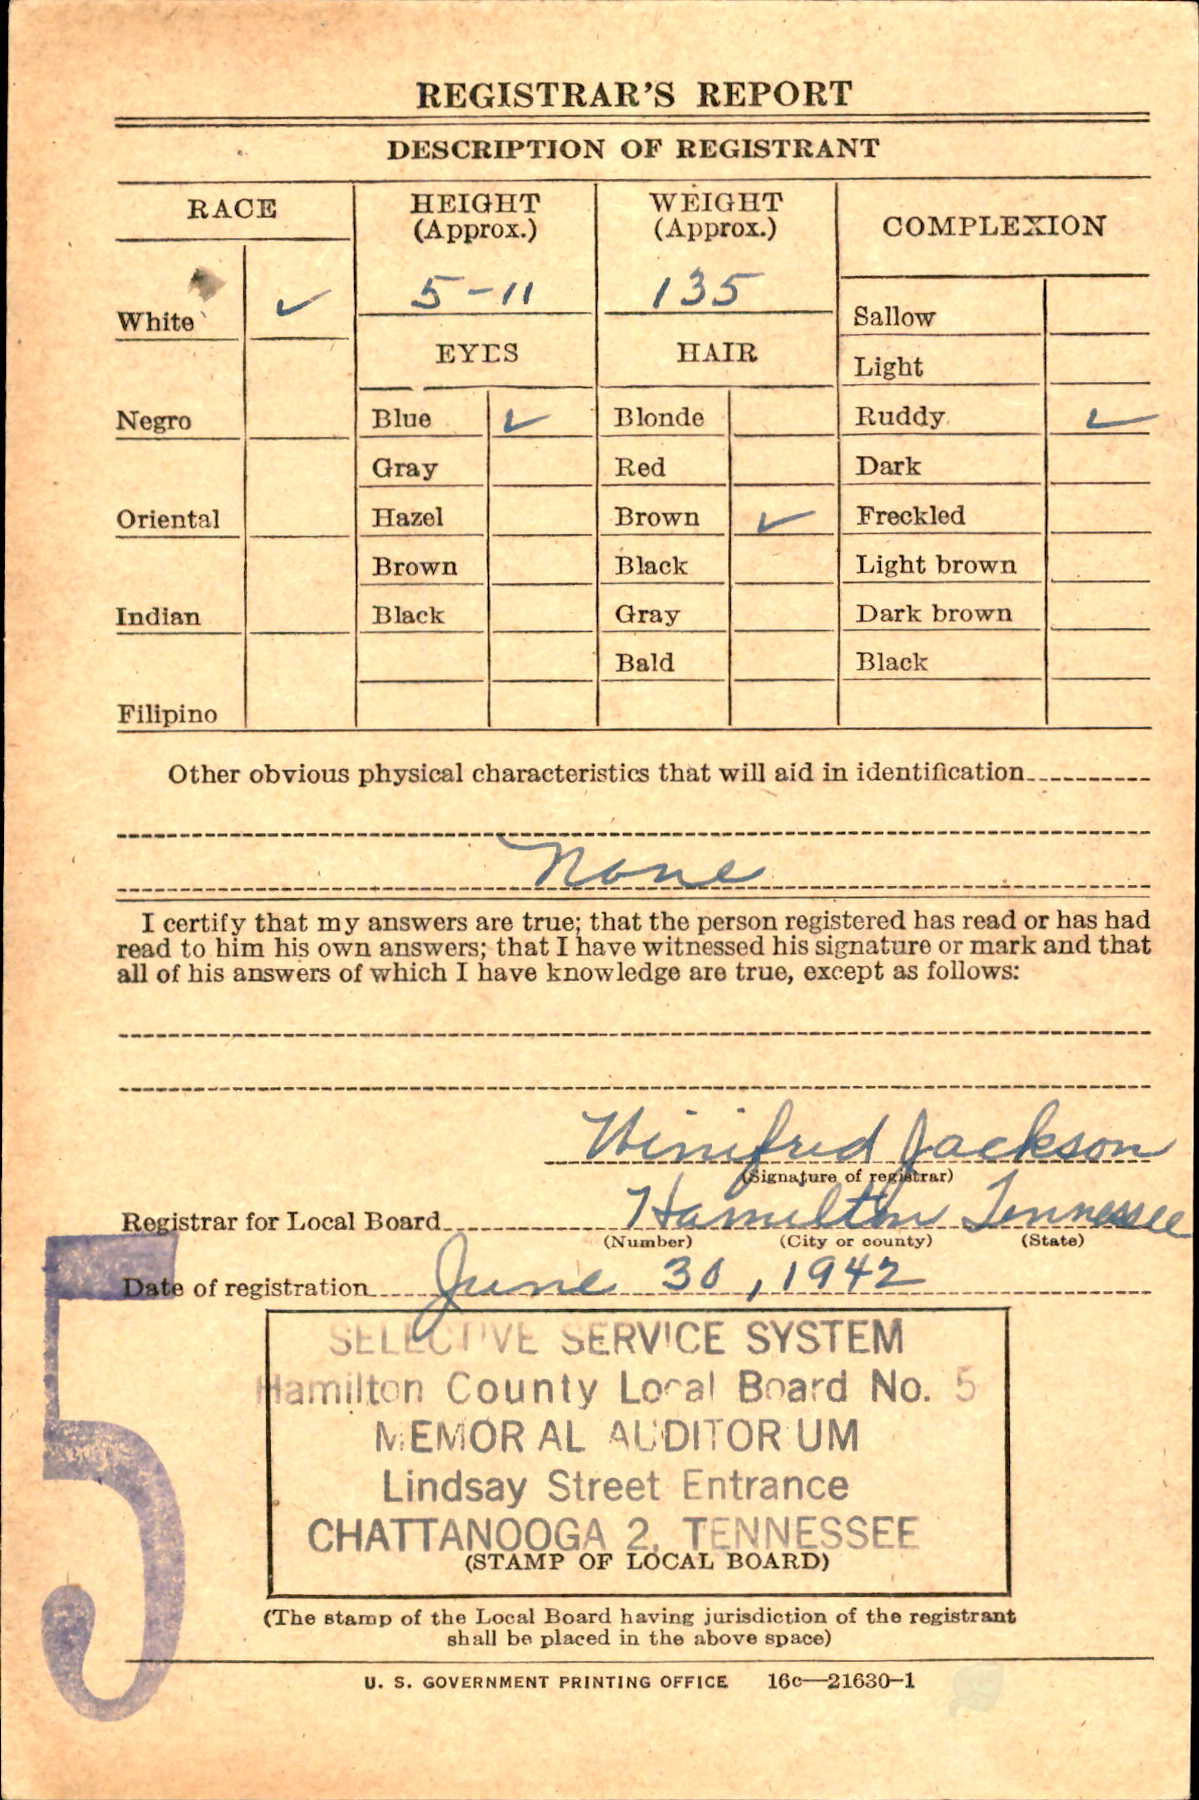 REGISTRAR'S REPORT
DESCRIPTION OF REGISTRANT
RACE
HEIGHT
(Approx.)
WEIGHT
(Approx.)
COMPLEXION
5-11
135
White ✓
Sallow
EYES
HAIR
Light
Negro
Blue ✓
Blonde
Ruddy ✓
Gray
Red
Dark
Oriental
Hazel
Brown ✓
Freckled
Brown
Black
Light brown
Indian
Black
Gray
Dark brown
Bald
Black
Filipino
Other obvious physical characteristics that will aid in identification
None
I certify that my answers are true; that the person registered has read or has had
read to him his own answers; that I have witnessed his signature or mark and that
all of his answers of which I have knowledge are true, except as follows:
Winifred Jackson
(Signature of registrar)
Registrar for Local Board Hamilton Tennessee
(Number) (City or county) (State)
Date of registration June 30, 1942
5
SELECTIVE SERVICE SYSTEM
Hamilton County Local Board No. 5
MEMORIAL AUDITORIUM
Lindsay Street Entrance
CHATTANOOGA 2, TENNESSEE
(STAMP OF LOCAL BOARD)
(The stamp of the Local Board having jurisdiction of the registrant
shall be placed in the above space)
U. S. GOVERNMENT PRINTING OFFICE 16c—21630-1